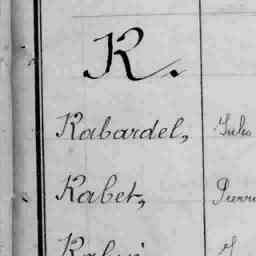 K.
Kabardel, Jules
Kabet, Pierre